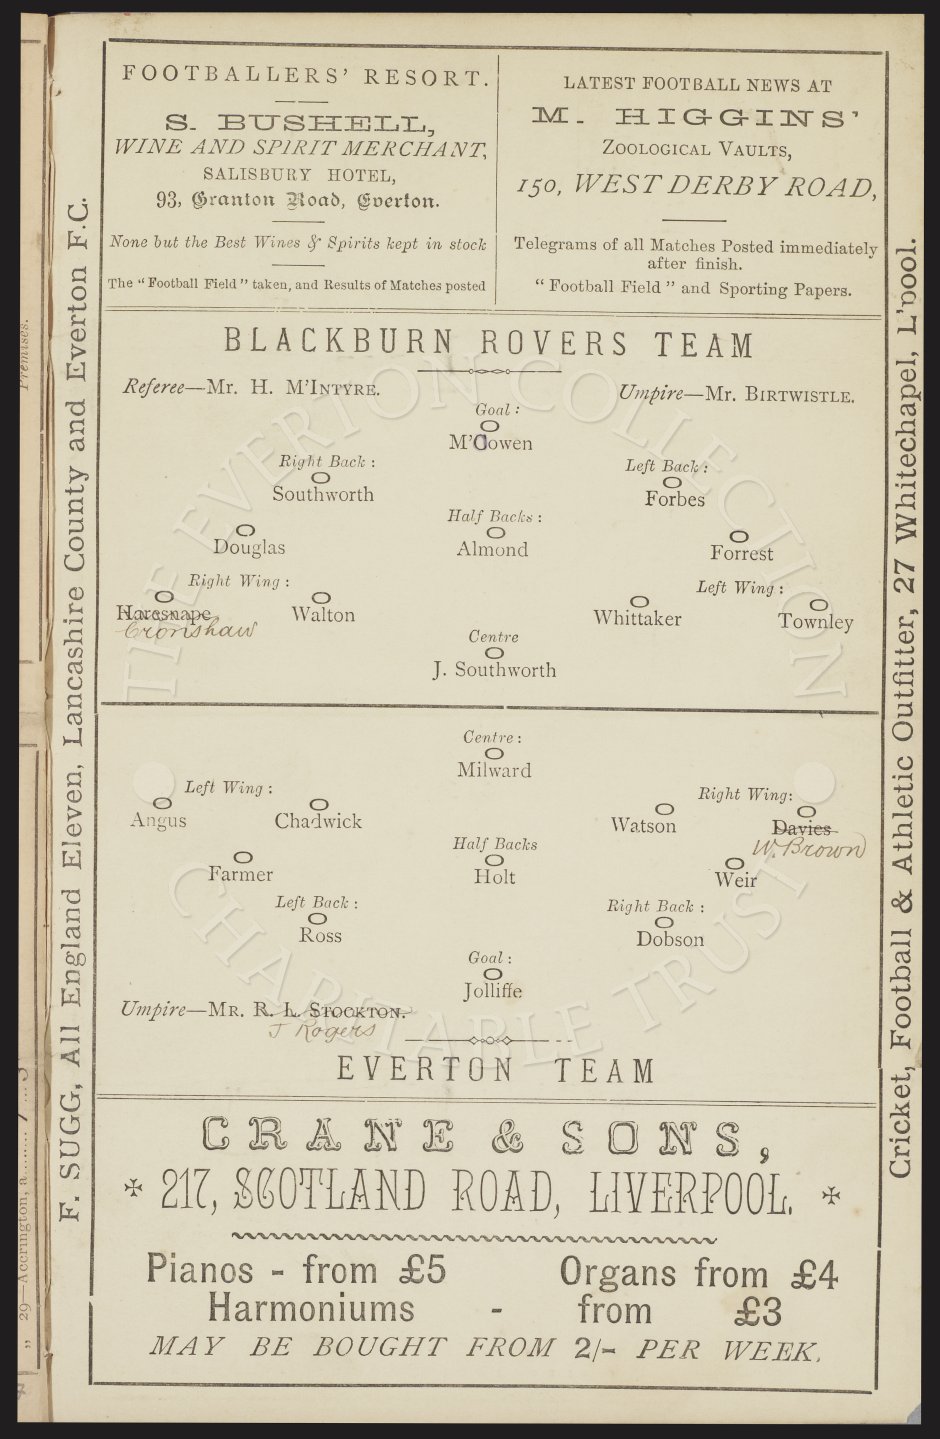 FOOTBALLERS' RESORT.
S. BUSHELL,
WINE AND SPIRIT MERCHANT,
SALISBURY HOTEL,
93, Granton Road, Everton.
None but the Best Wines & Spirits kept in stock
The "Football Field" taken, and Results of Matches posted
LATEST FOOTBALL NEWS AT
M. HIGGINS'
ZOOLOGICAL VAULTS,
150, WEST DERBY ROAD,
Telegrams of all Matches Posted immediately
after finish.
"Football Field" and Sporting Papers.
F. SUGG, All England Eleven, Lancashire County and Everton F.C.
Cricket, Football & Athletic Outfitter, 27 Whitechapel, L'pool.
BLACKBURN ROVERS TEAM
Referee—Mr. H. M'INTYRE. Umpire—Mr. BIRTWISTLE.
Goal:
M'Cowen
Right Back: Left Back:
Southworth Forbes
Half Backs:
Douglas Almond Forrest
Right Wing: Left Wing:
Haresnape Walton Whittaker Townley
Cronshaw
Centre
J. Southworth
Centre:
Milward
Left Wing: Right Wing:
Angus Chadwick Watson Davies
W. Brown
Half Backs
Farmer Holt Weir
Left Back: Right Back:
Ross Dobson
Goal:
Jolliffe
Umpire—MR. R. L. STOCKTON.
J Rogers
EVERTON TEAM
CRANE & SONS,
217, SCOTLAND ROAD, LIVERPOOL.
Pianos - from £5 Organs from £4
Harmoniums - from £3
MAY BE BOUGHT FROM 2/- PER WEEK.
THE EVERTON COLLECTION
CHARITABLE TRUST
Premises.
„ 29—Accrington, a